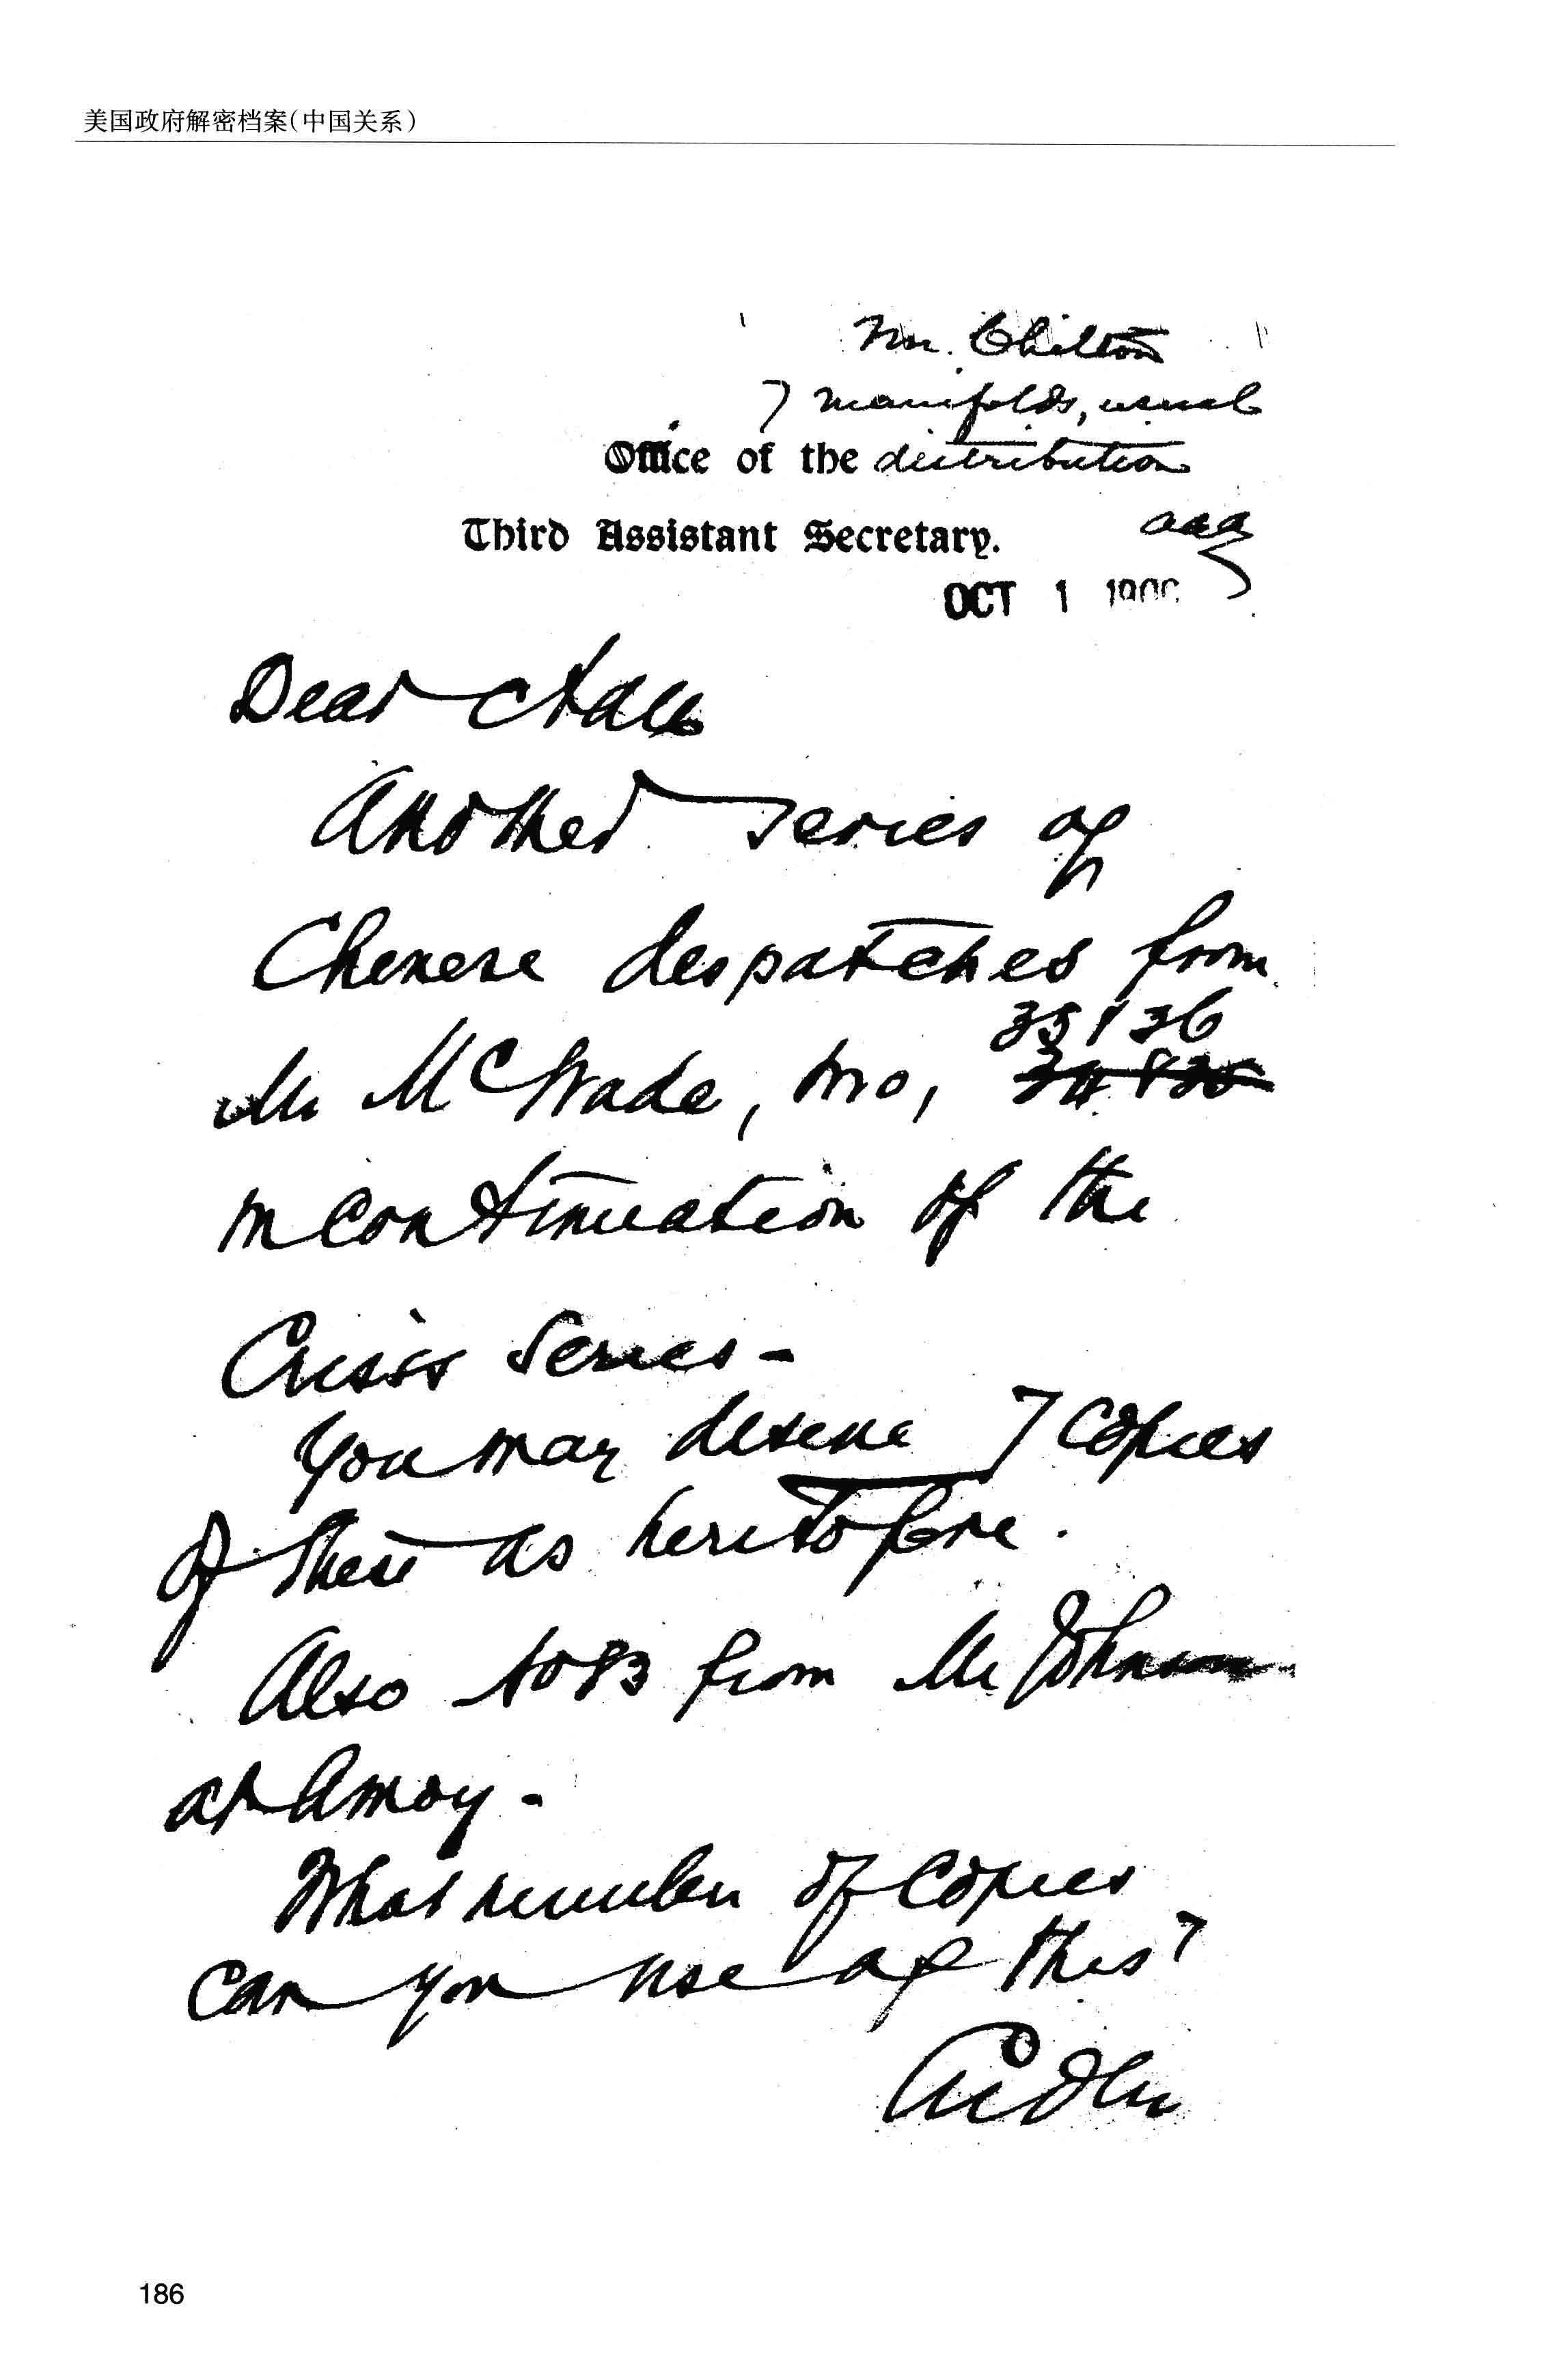 美国政府解密档案(中国关系)
Mr. Chilton
7 manifolds, usual
Office of the distribution
Third Assistant Secretary. aaa
OCT 1 1900
Dear Adee
Another series of
Chinese despatches from
35 & 36
Mr McWade, no, 34 & 35
in continuation of the
Crisis Series -
You may desire 7 Copies
of these as heretofore.
Also No 83 from Mr Johnson
at Amoy -
What number of Copies
can you use of this?
Cridler
186